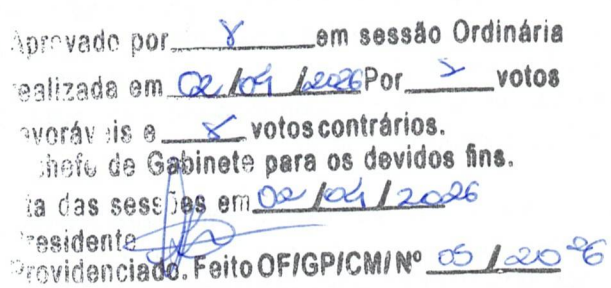 Aprovado por 8 em sessão Ordinária
realizada em 02/04/2026 Por votos
favoráveis e votos contrários.
chefe de Gabinete para os devidos fins.
ta das sessões em 02/04/2026
Presidente
Providenciado. Feito OF/GP/CM/Nº 05/2026